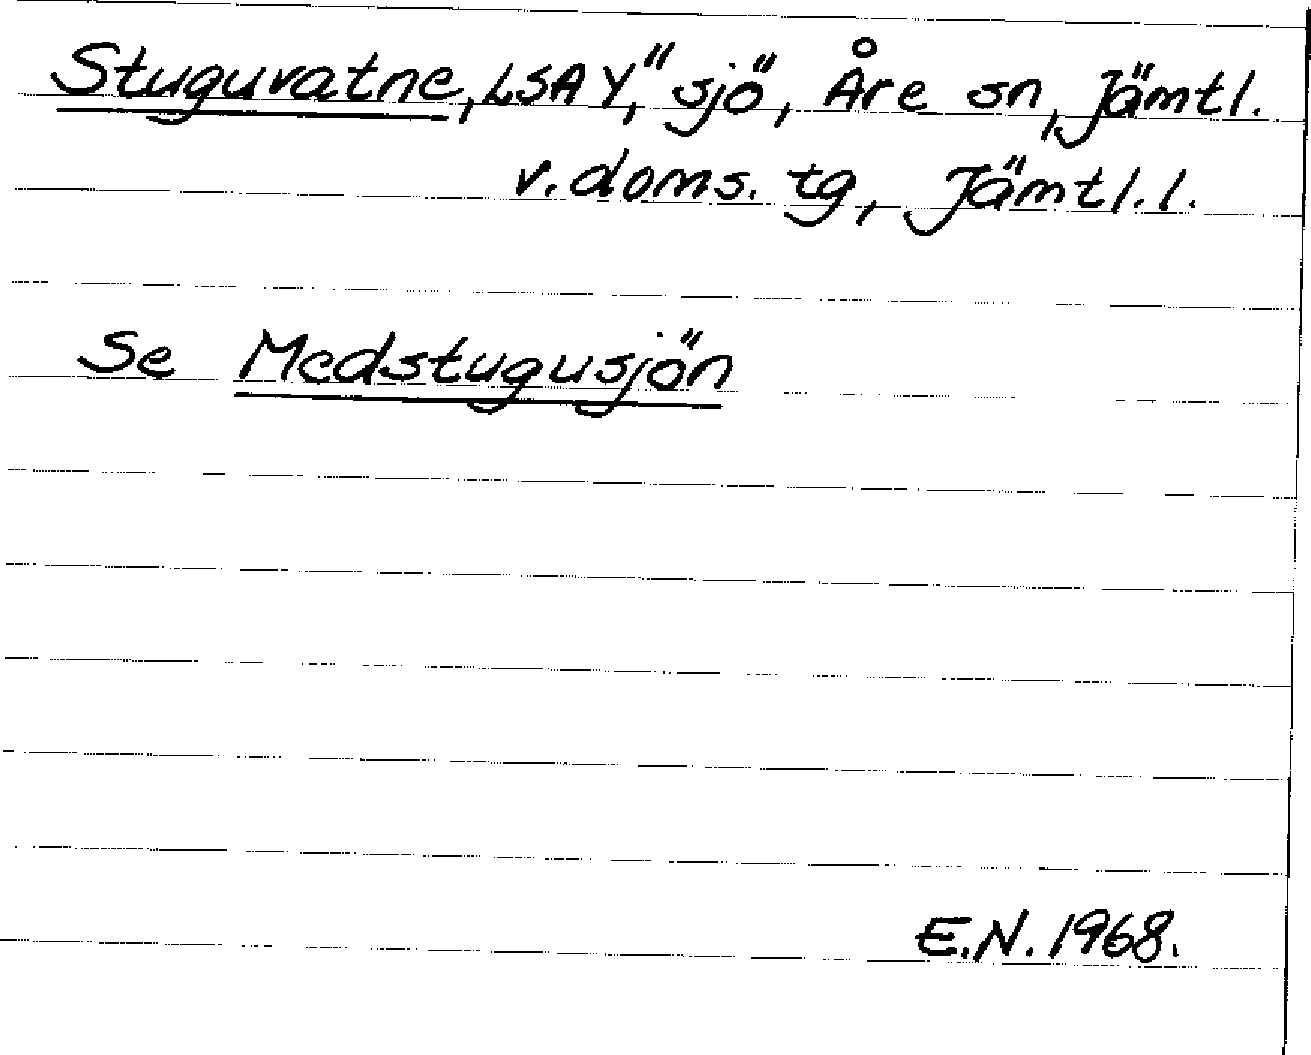 Stuguvatne, LSA Y, "sjö", Åre sn, Jämtl.
v. doms. tg, Jämtl. l.
Se Medstugusjön
E.N. 1968.